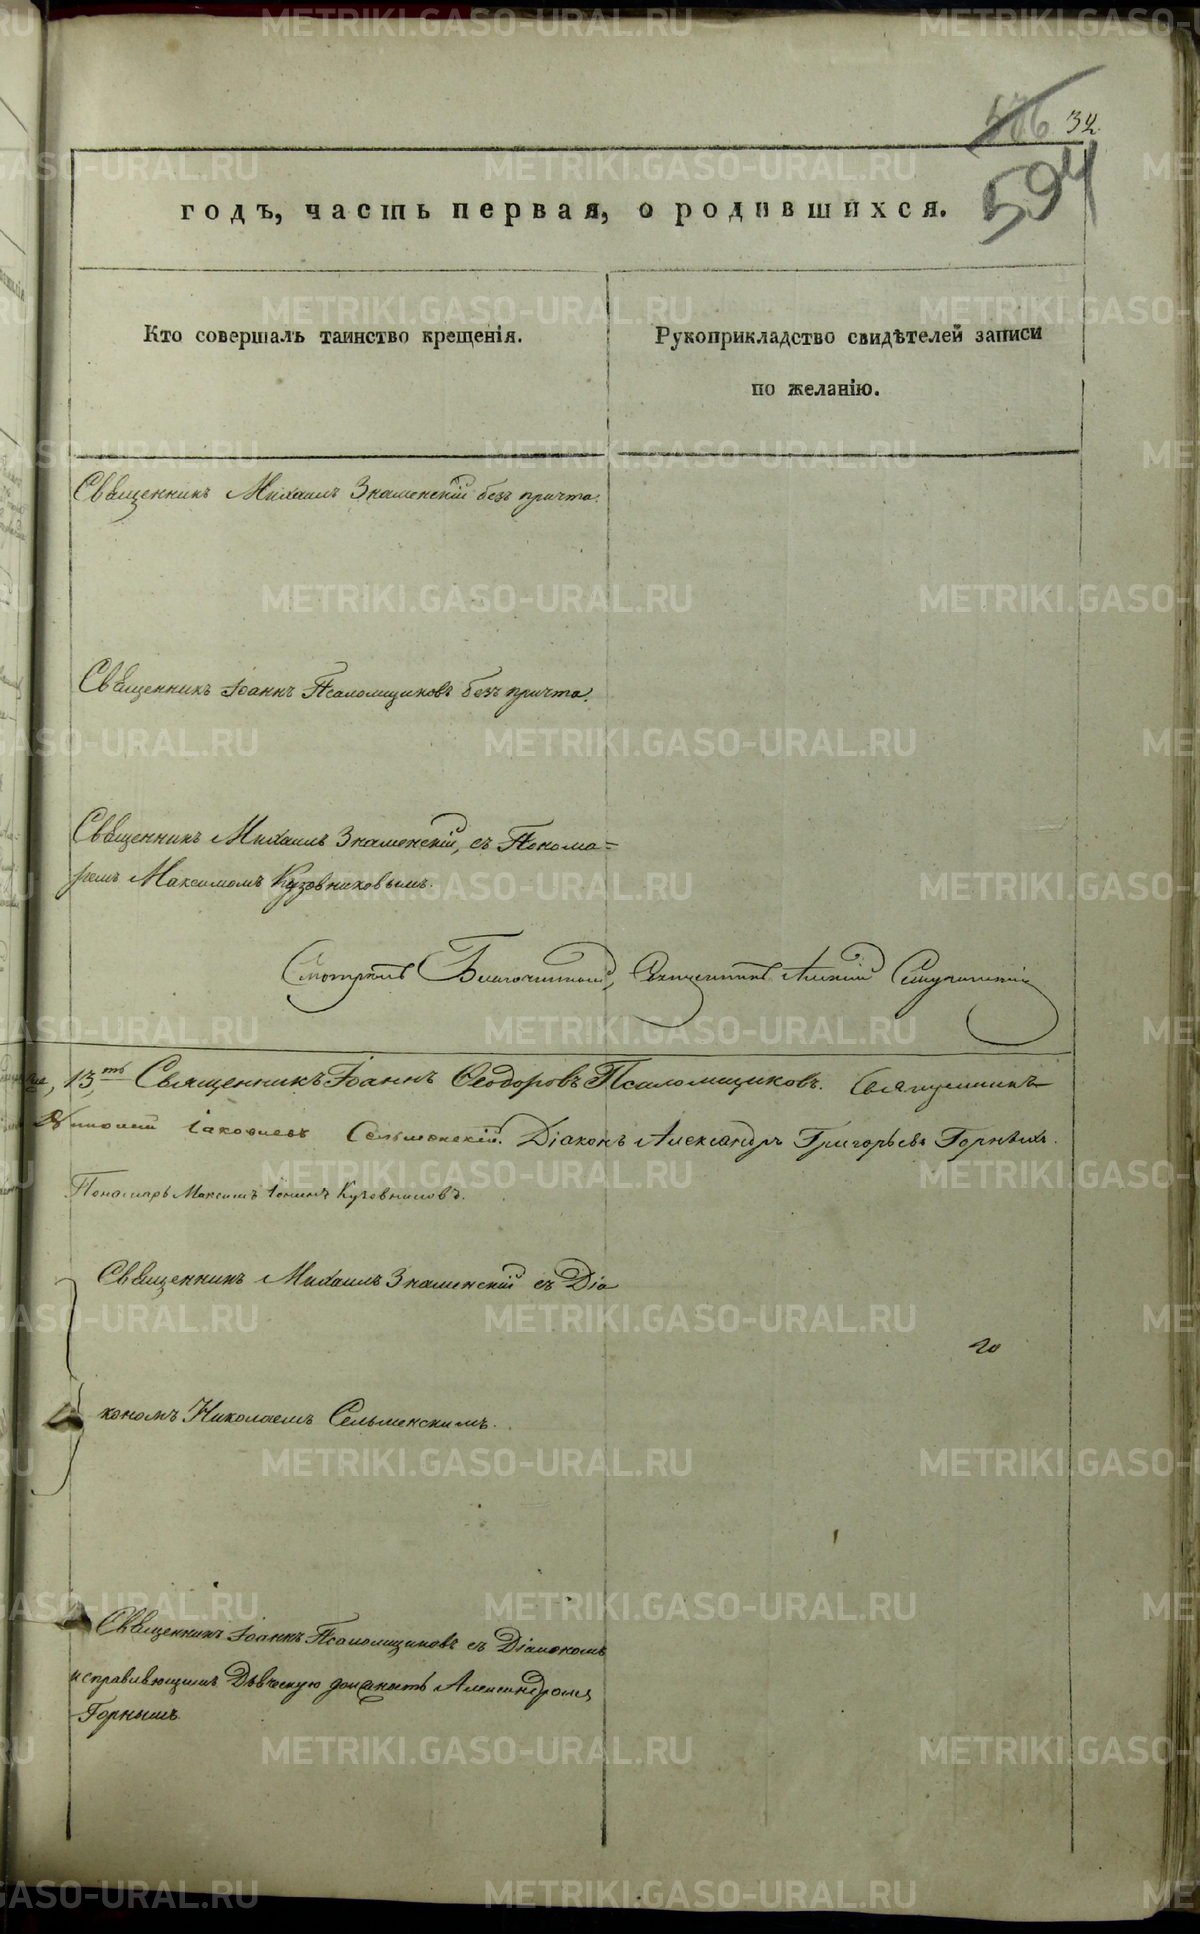 32
594
годъ, часть первая, о родившихся.
Кто совершалъ таинство крещенія.
Рукоприкладство свидѣтелей записи
по желанію.
Священникъ Михаилъ Знаменскій безъ причта.
Священникъ Іоаннъ Псаломщиковъ безъ причта.
Священникъ Михаилъ Знаменскій, съ Понома=
ремъ Максимомъ Кузовниковымъ.
Смотрѣлъ Благочинный, Священникъ
13, ть Священникъ Іоаннъ Ѳеодоровъ Псаломщиковъ. Священникъ
Іаковлевъ Сельменскій. Діаконъ Александръ Григорьевъ Горныхъ.
Пономарь Максимъ Іонинъ Кузовниковъ.
Священникъ Михаилъ Знаменскій съ Діа
20
кономъ Николаемъ Сельменскимъ.
Священникъ Іоаннъ Псаломщиковъ съ Діакономъ
исправляющимъ должность Александромъ
Горнымъ
METRIKI.GASO-URAL.RU